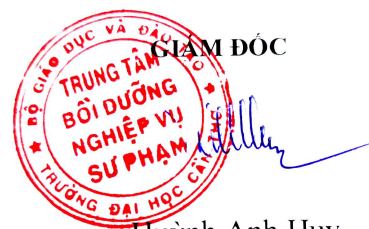 GIÁM ĐỐC
BỘ GIÁO DỤC VÀ ĐÀO TẠO
TRUNG TÂM
BỒI DƯỠNG
NGHIỆP VỤ
SƯ PHẠM
TRƯỜNG ĐẠI HỌC CẦN THƠ
Huỳnh Anh Huy